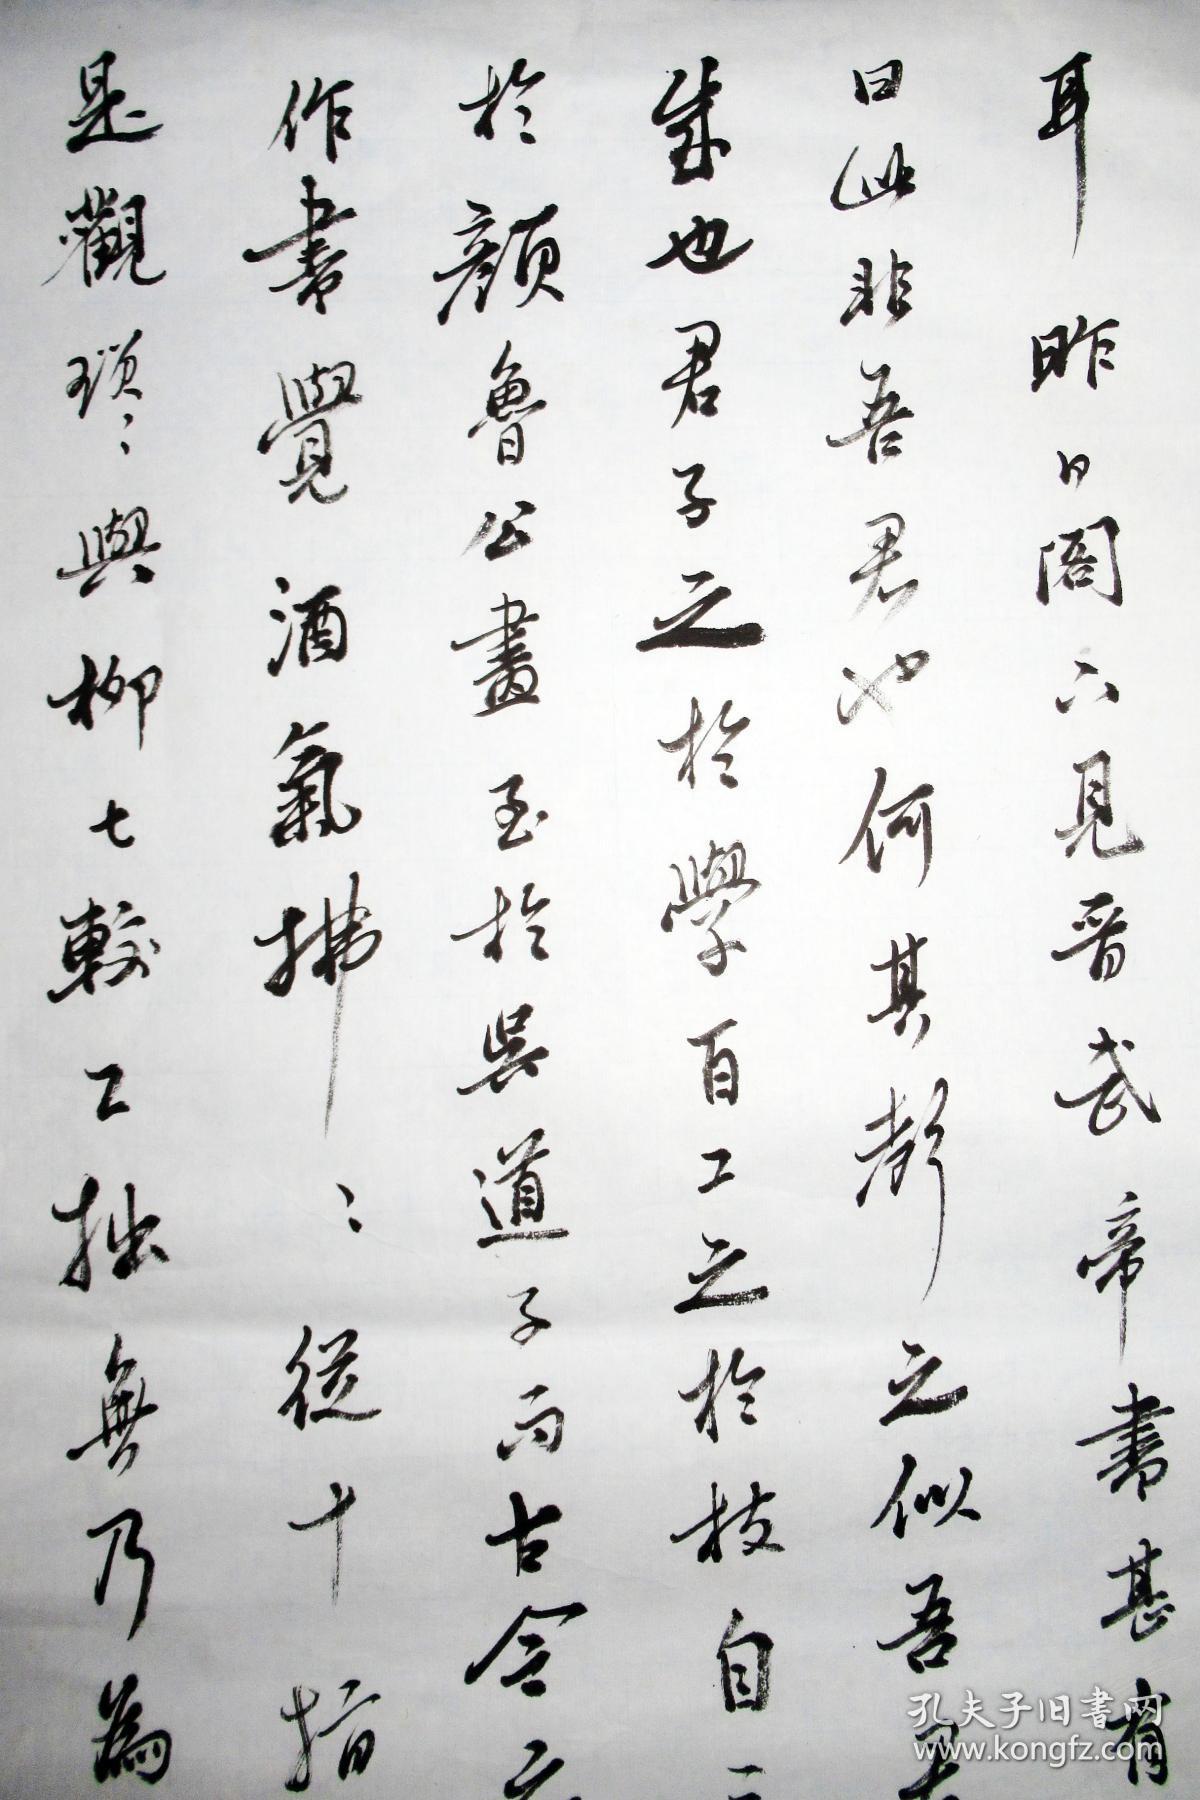 耳 昨日閣下見晋武帝書甚有
曰此非吾君也何其聲之似吾君
成也君子之於學百工之於技自三
於顏魯公畫至於吳道子而古今之
作書覺酒氣拂〻從十指
是觀瑣〻與柳七較工拙無乃為
孔夫子旧书网
www.kongfz.com